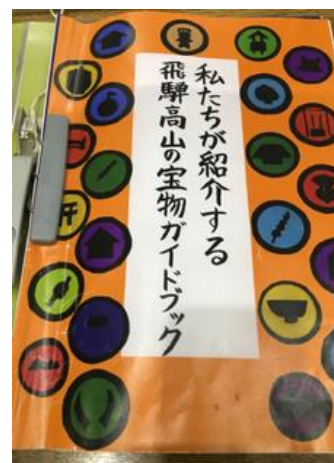 私たちが紹介する
飛騨高山の宝物ガイドブック